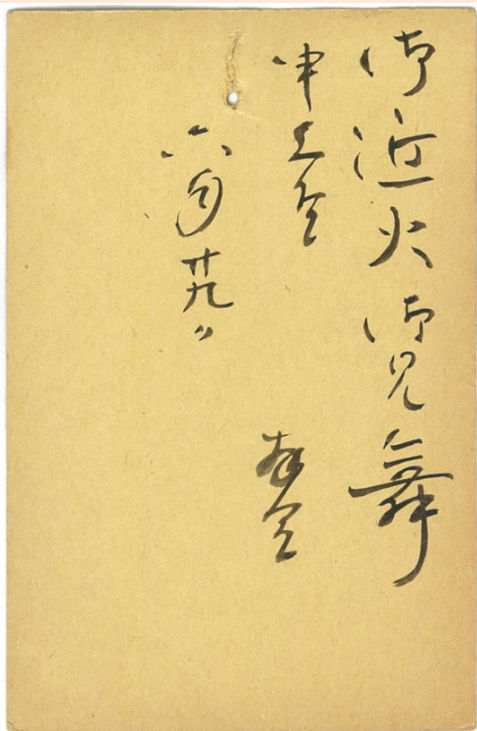 御近火御見舞
申上候
六月廿九日